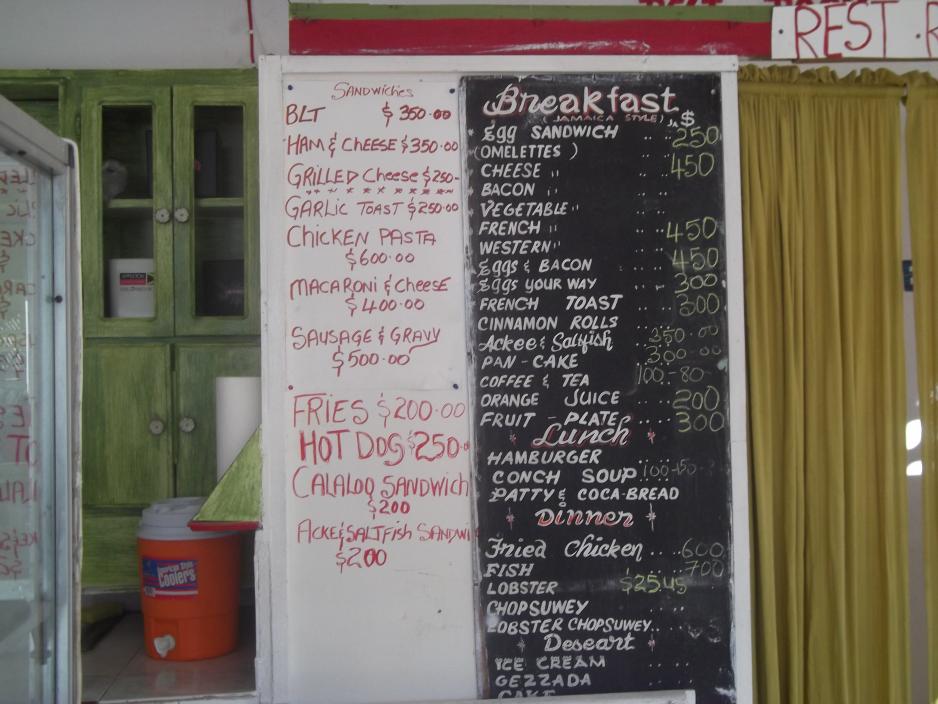 REST
Sandwiches
BLT $350.00
HAM & CHEESE $350.00
GRILLED Cheese $250-
GARLIC TOAST $250.00
CHICKEN PASTA
$600.00
MACARONI & CHEESE
$400.00
SAUSAGE & GRAVY
$500.00
FRIES $200.00
HOT DOG $250.
CALALOO SANDWICH
$200
ACKE&SALTFISH SANDWI
$200
Breakfast
(JAMAICA STYLE) JA $
Egg SANDWICH .. .. 250
(OMELETTES )
CHEESE " .. .. 450
BACON "
VEGETABLE "
FRENCH " .. .. 450
WESTERN "
Eggs & BACON .... 450
Eggs YOUR WAY .... 300
FRENCH TOAST .... 300
CINNAMON ROLLS
Ackee & Saltfish 350.00
PAN-CAKE 300.00
COFFEE & TEA 100.-80-
ORANGE JUICE .... 200
FRUIT - PLATE .. 300
Lunch
HAMBURGER
CONCH SOUP 100-150
PATTY & COCA-BREAD
Dinner
Fried Chicken .... 600
FISH .... 700
LOBSTER $25 US
CHOPSUWEY
LOBSTER CHOPSUWEY....
Deseart
ICE CREAM ....
GEZZADA ....
CAKE
American Style
Coolers